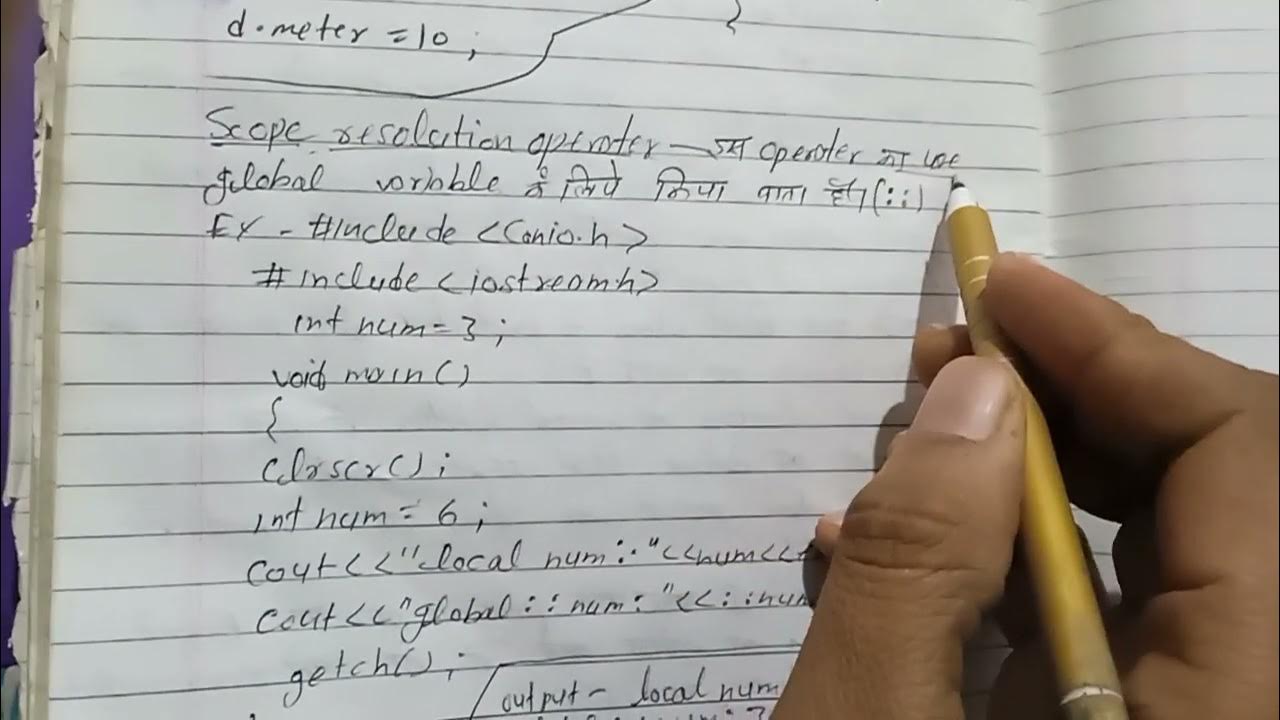 d.meter = 10 ;
}
Scope resolution operater — इस operater का use
global variable के लिये किया जाता है। (::)
Ex - #include <conio.h>
# include <iostream.h>
int num = 3 ;
void main ()
{
clrscr() ;
int num = 6 ;
cout << "local num : "<<num<<
cout << "global :: num : "<< :: num
getch() ;
output - local num